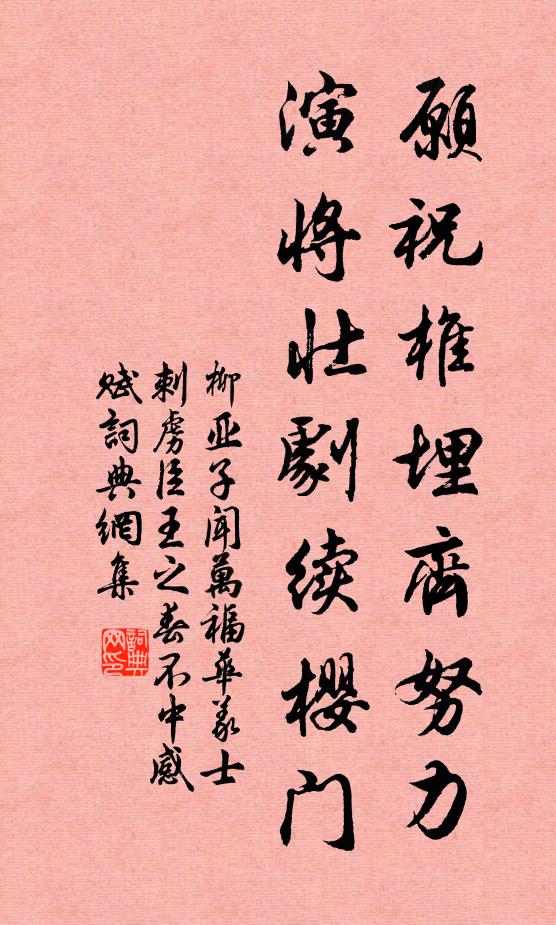 願祝椎埋齊努力
演將壯劇續櫻门
柳亚子聞萬福華義士
刺虜臣王之春不中感
賦詞典網集
詞典网印